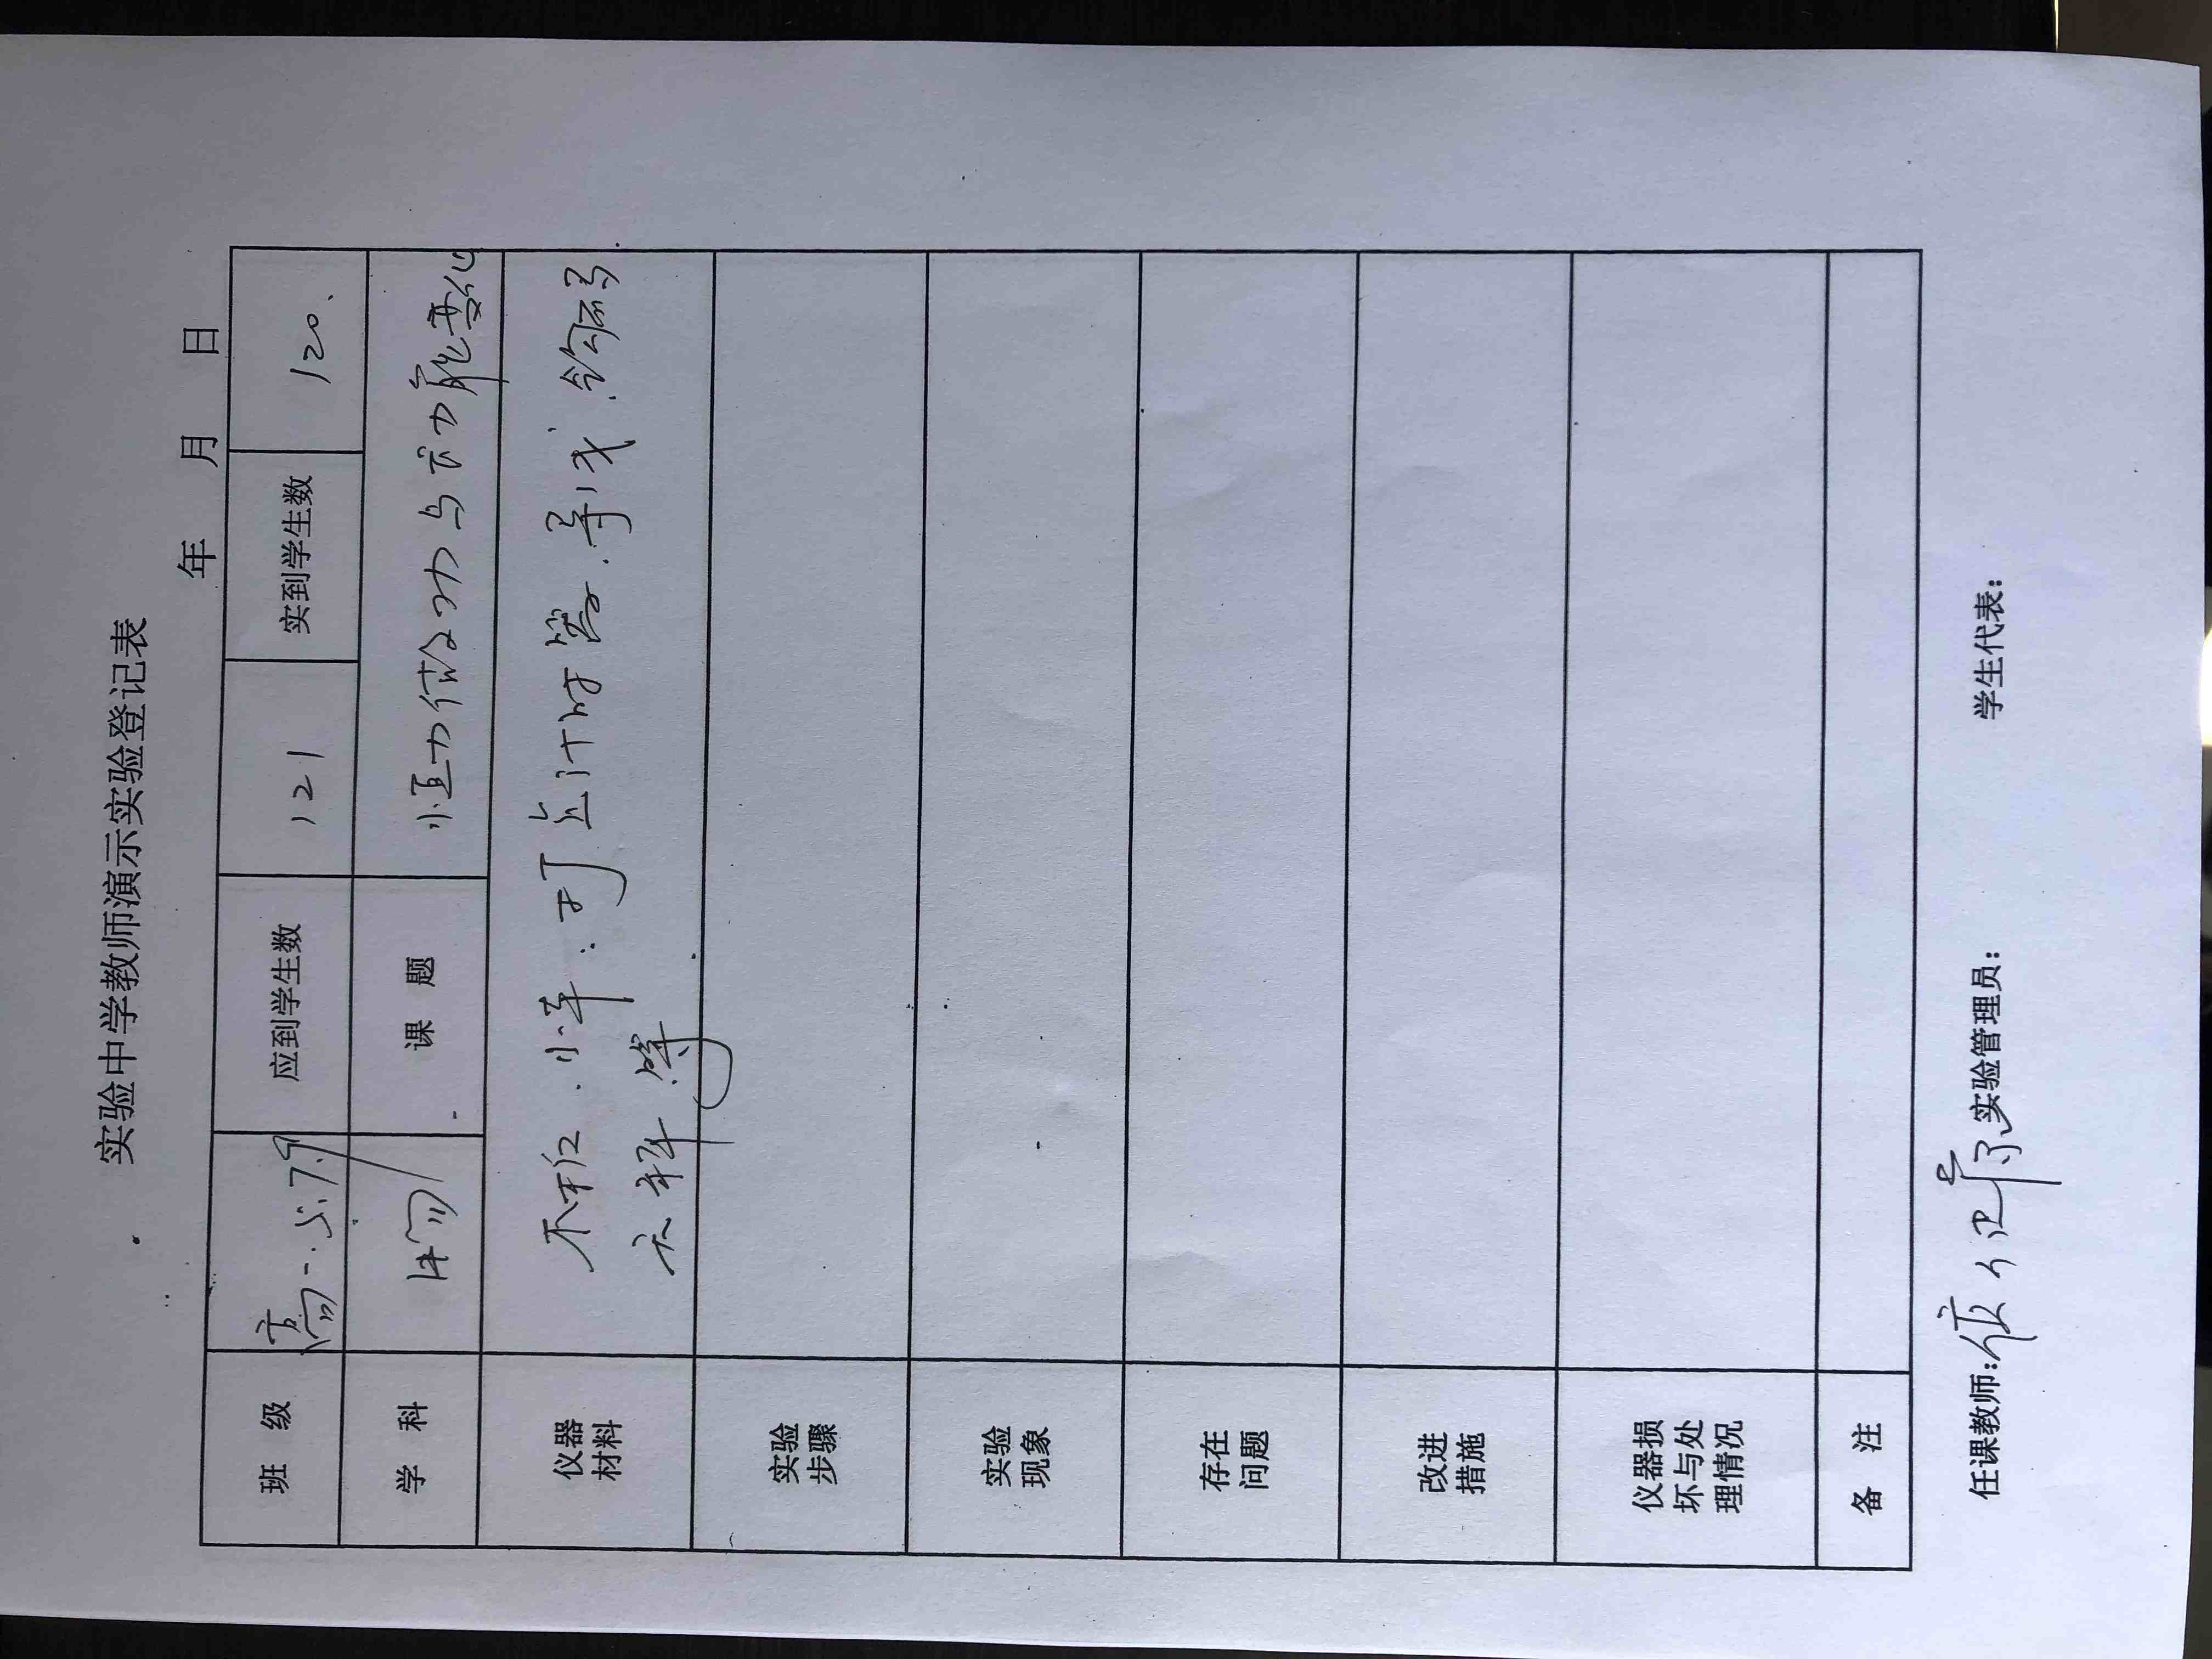 实验中学教师演示实验登记表
年 月 日
班 级 高一.5.7.9 应到学生数 121 实到学生数 120.
学 科 物 课 题 恒力做功与动能变化
仪器
材料
木板.小车.打点计时器.导线.钩码
天平等
实验
步骤
实验
现象
存在
问题
改进
措施
仪器损
坏与处
理情况
备 注
任课教师: 实验管理员: 学生代表: